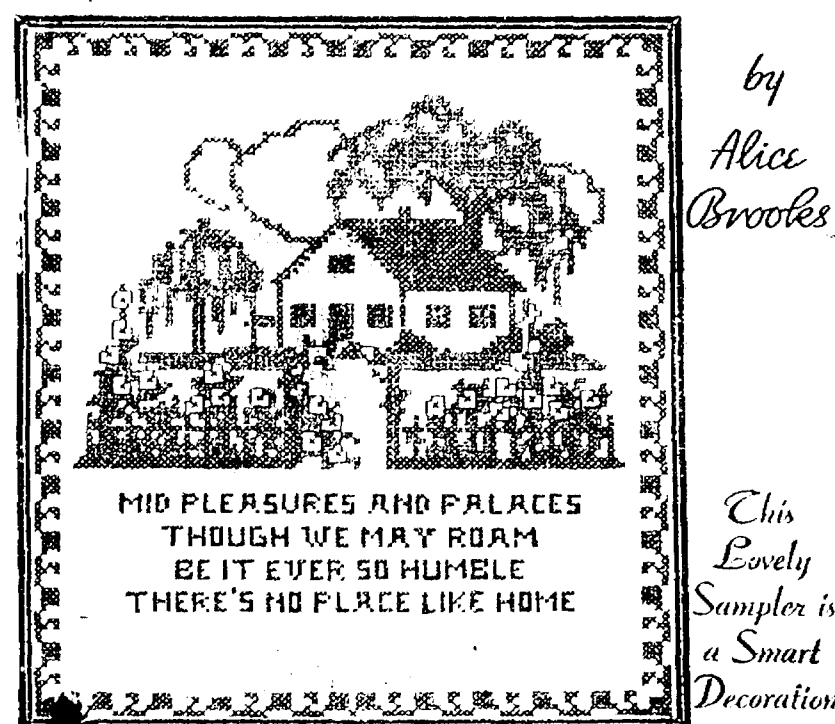 by
Alice
Brooks
MID PLEASURES AND PALACES
THOUGH WE MAY ROAM
BE IT EVER SO HUMBLE
THERE'S NO PLACE LIKE HOME
This
Lovely
Sampler is
a Smart
Decoration